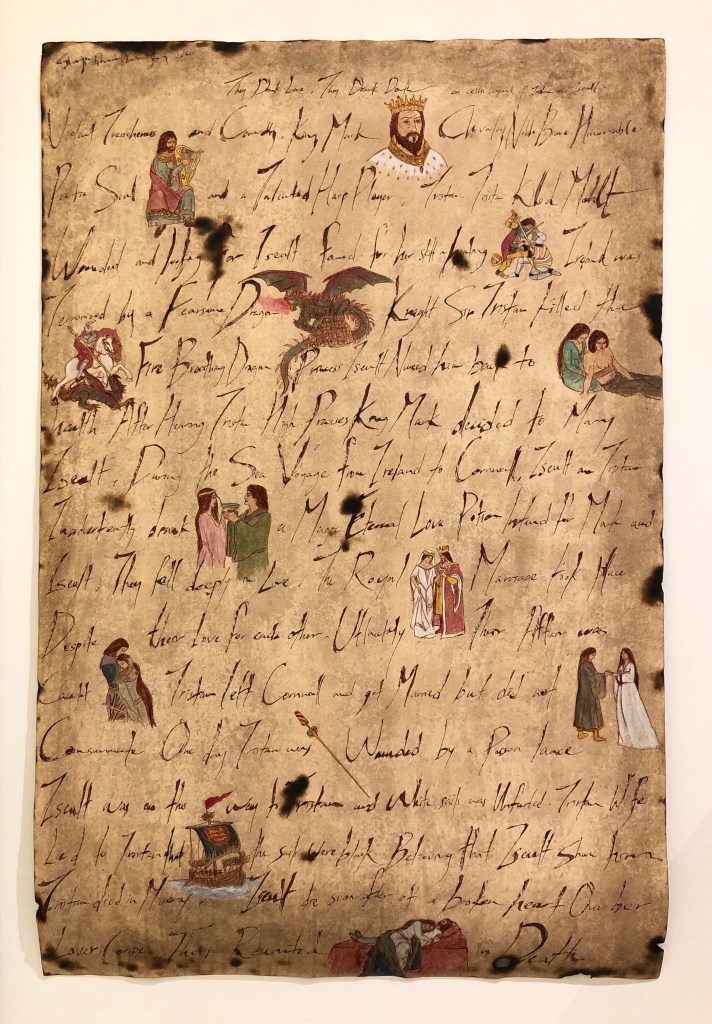 They Drink Love, They Drink Death
Violent Treacherous and Cowardly, King Mark Chivalry Noble Brave Honorable
Poetic Soul and a Talented Harp Player, Tristan. Tristan Killed
Wounded and looking for Iseult famed for her skill Ireland was
Terrorized by a Fearsome Dragon Knight Sir Tristan killed the
Fire Breathing Dragon. Princess Iseult Nursed him back to
health After Hearing Tristan High Praises King Mark decided to Marry
Iseult, During the Sea Voyage from Ireland to Cornwall, Iseult and Tristan
Inadvertently drank a Magic Eternal Love Potion Intend for Mark and
Iseult, They fell deeply in Love. The Royal Marriage took Place
Despite their Love for each other. Ultimately Their Affair was
Tristan left Cornwall and get Married but did not
Consummate One day Tristan was Wounded by a Poison lance
Iseult was on the way to Tristan and White sails was Unfurled. Tristan Wife
Lied to Tristan that the sails were black Believing that Iseult
Tristan died in Misery. Iseult die soon after of a broken heart Over her
Lover Corpse They Reunited in Death